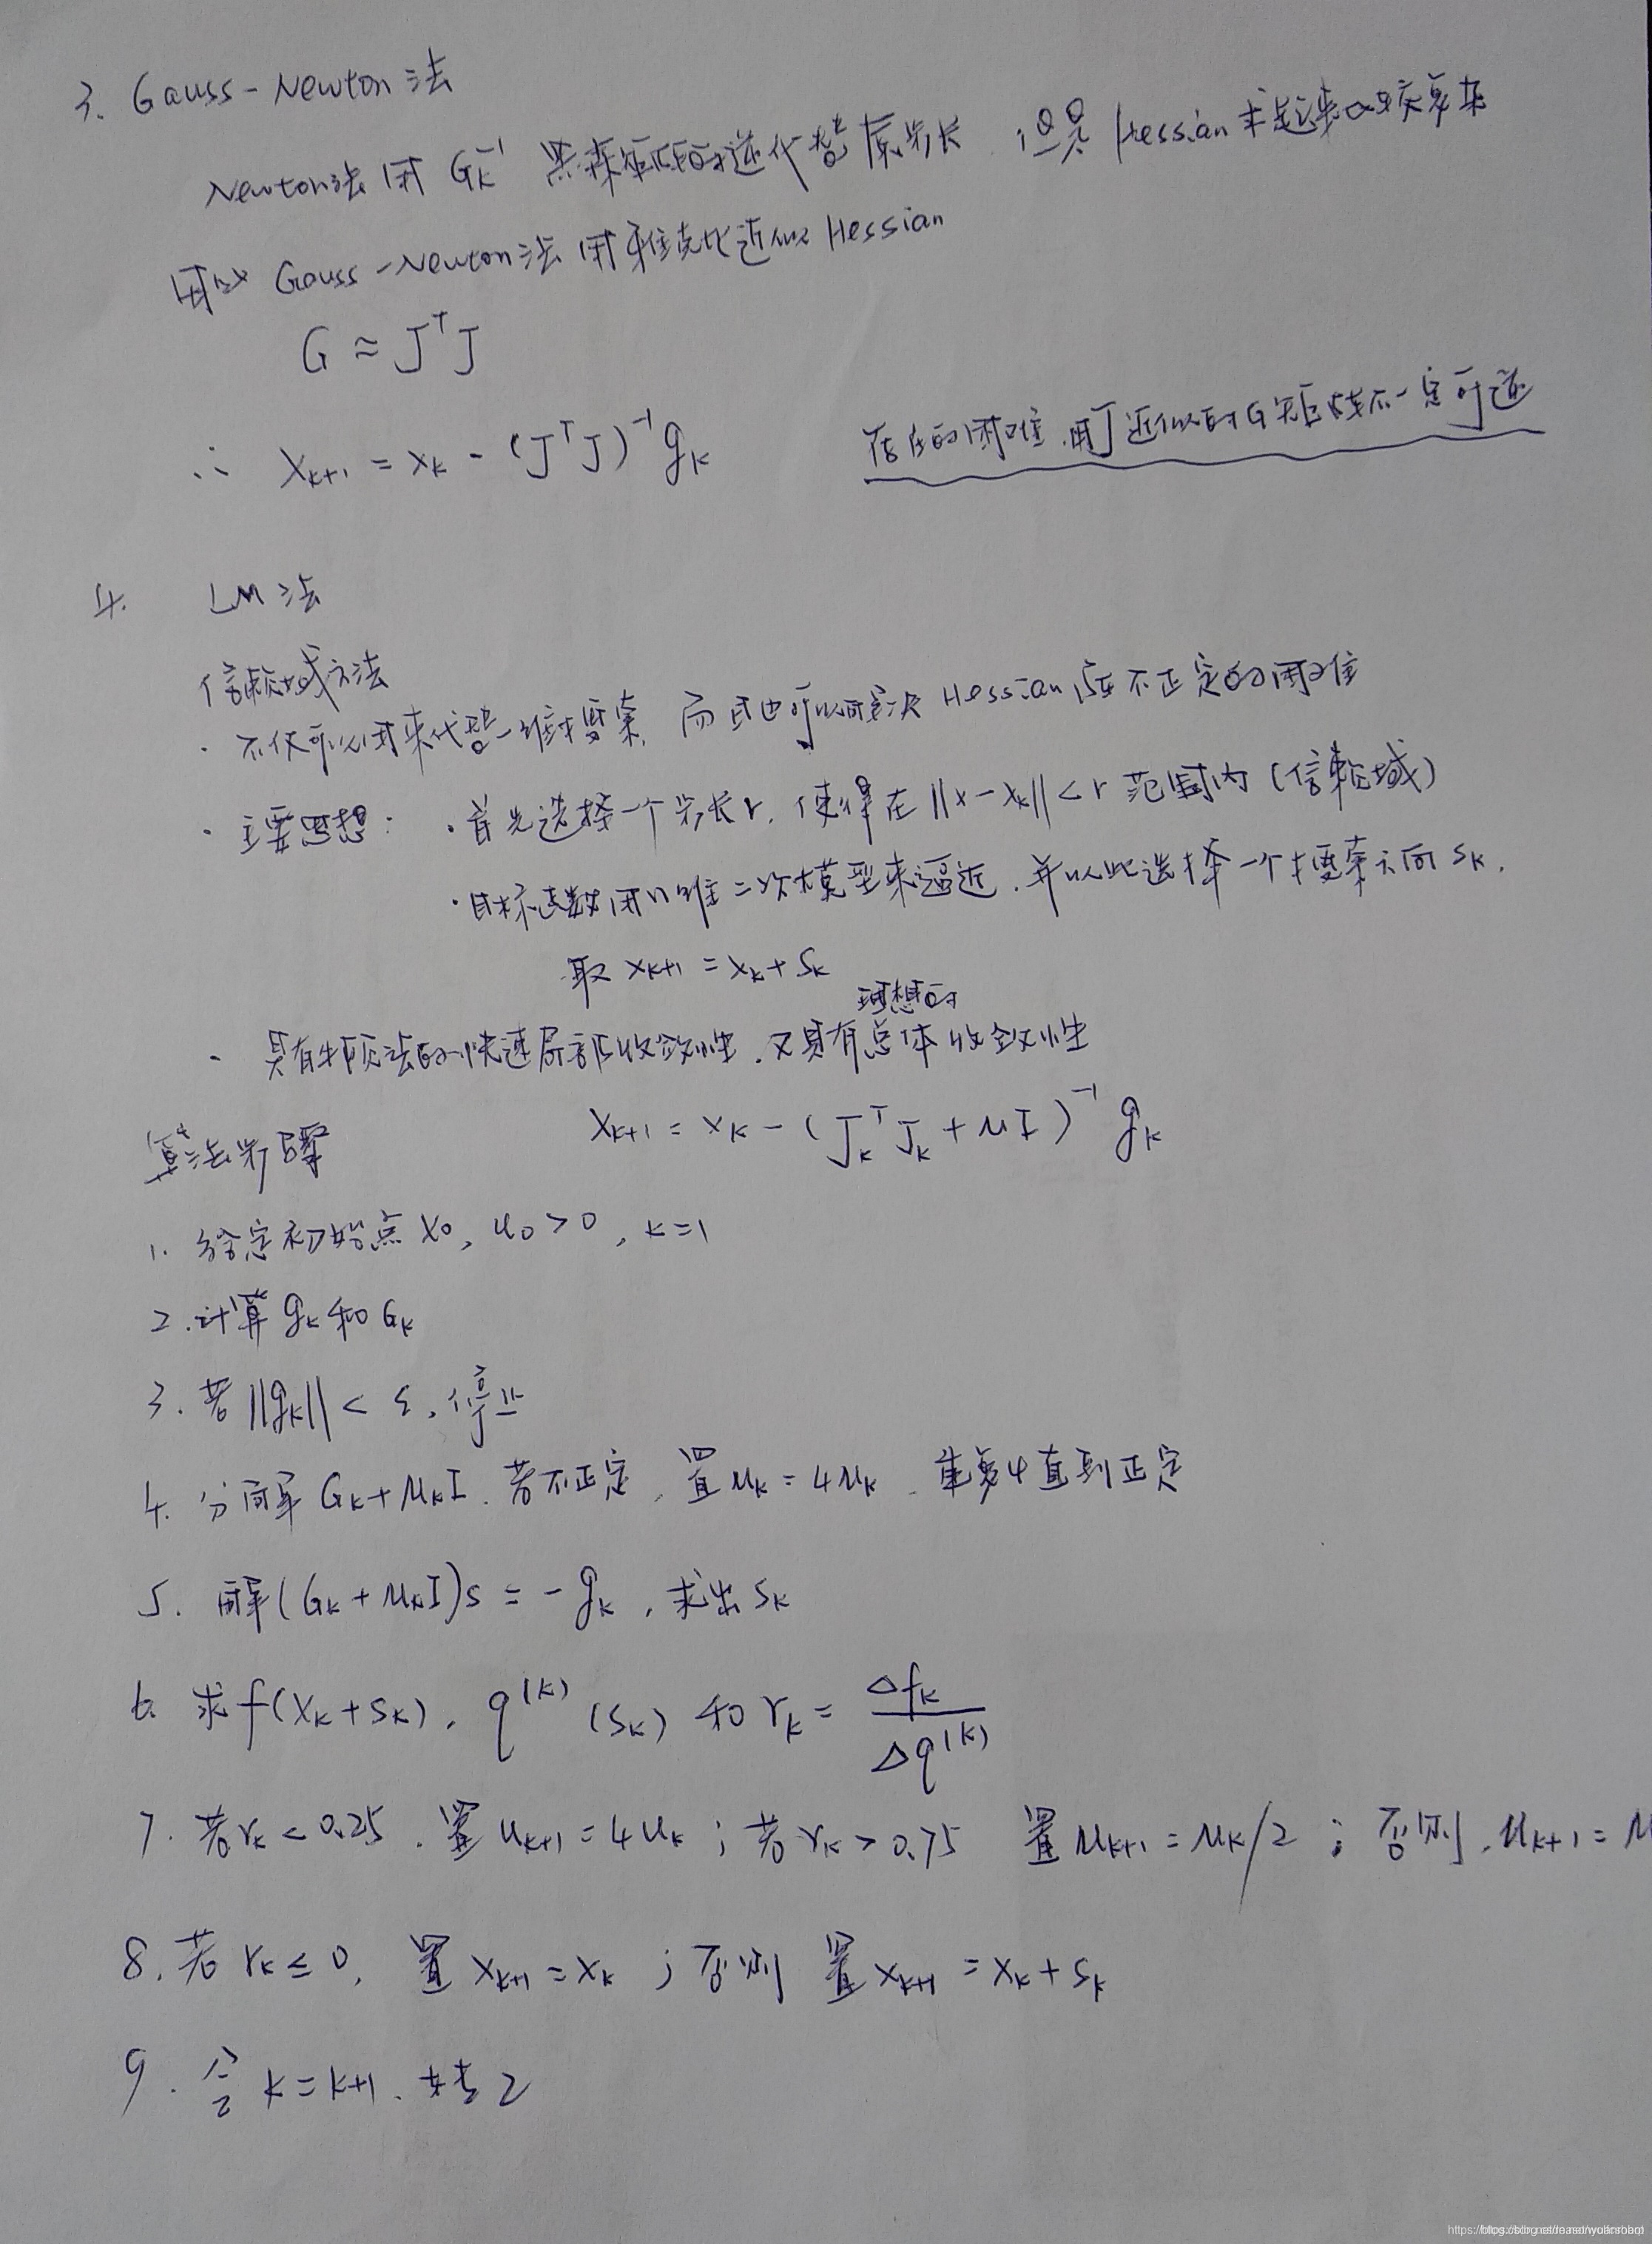 3. Gauss-Newton法
Newton法用 G_k^{-1} 黑森矩阵的逆代替原步长，但是 Hessian求起来比较复杂
所以 Gauss-Newton法用雅克比近似 Hessian
G ≈ J^T J
∴ x_{k+1} = x_k - (J^T J)^{-1} g_k
存在的困难，用J近似的G矩阵不一定可逆
4. LM法
信赖域方法
· 不仅可以用来代替一维搜索，而且也可以解决 Hessian阵不正定的困难
· 主要思想： · 首先选择一个步长r，使得在 ||x-x_k||<r 范围内（信赖域）
· 目标函数用n维二次模型来逼近，并以此选择一个搜索方向 s_k.
取 x_{k+1} = x_k + s_k
· 具有牛顿法的快速局部收敛性，又具有理想的总体收敛性
x_{k+1} = x_k - (J_k^T J_k + μI)^{-1} g_k
算法步骤
1. 给定初始点 x_0, u_0>0, k=1
2. 计算 g_k 和 G_k
3. 若 ||g_k|| < ε, 停止
4. 分解 G_k+μ_kI，若不正定，置 μ_k = 4μ_k，重复4直到正定
5. 解(G_k+μ_kI)s = -g_k, 求出 s_k
6. 求 f(x_k+s_k), q^{(k)}(s_k) 和 r_k = Δf_k / Δq^{(k)}
7. 若 r_k < 0.25, 置 u_{k+1} = 4u_k ; 若 r_k > 0.75 置 μ_{k+1} = μ_k/2 ; 否则, μ_{k+1} = μ
8. 若 r_k ≤ 0, 置 x_{k+1} = x_k ; 否则 置 x_{k+1} = x_k + s_k
9. 令 k=k+1, 转2